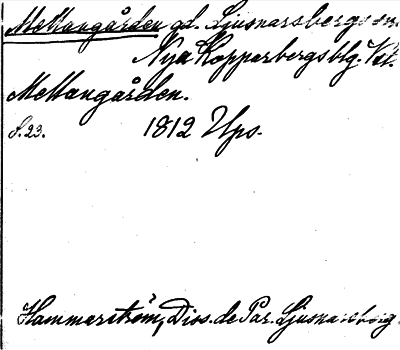 Mellangården gd. Ljusnarsbergs sn.
Nya Kopparbergs blg. Vstm.
Mellangården.
S. 23. 1812 Ups.
Hammarström, Diss. de Par. Ljusnarsberg.